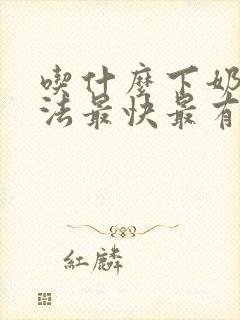 喫什麼下奶
法最快最有
紅麟